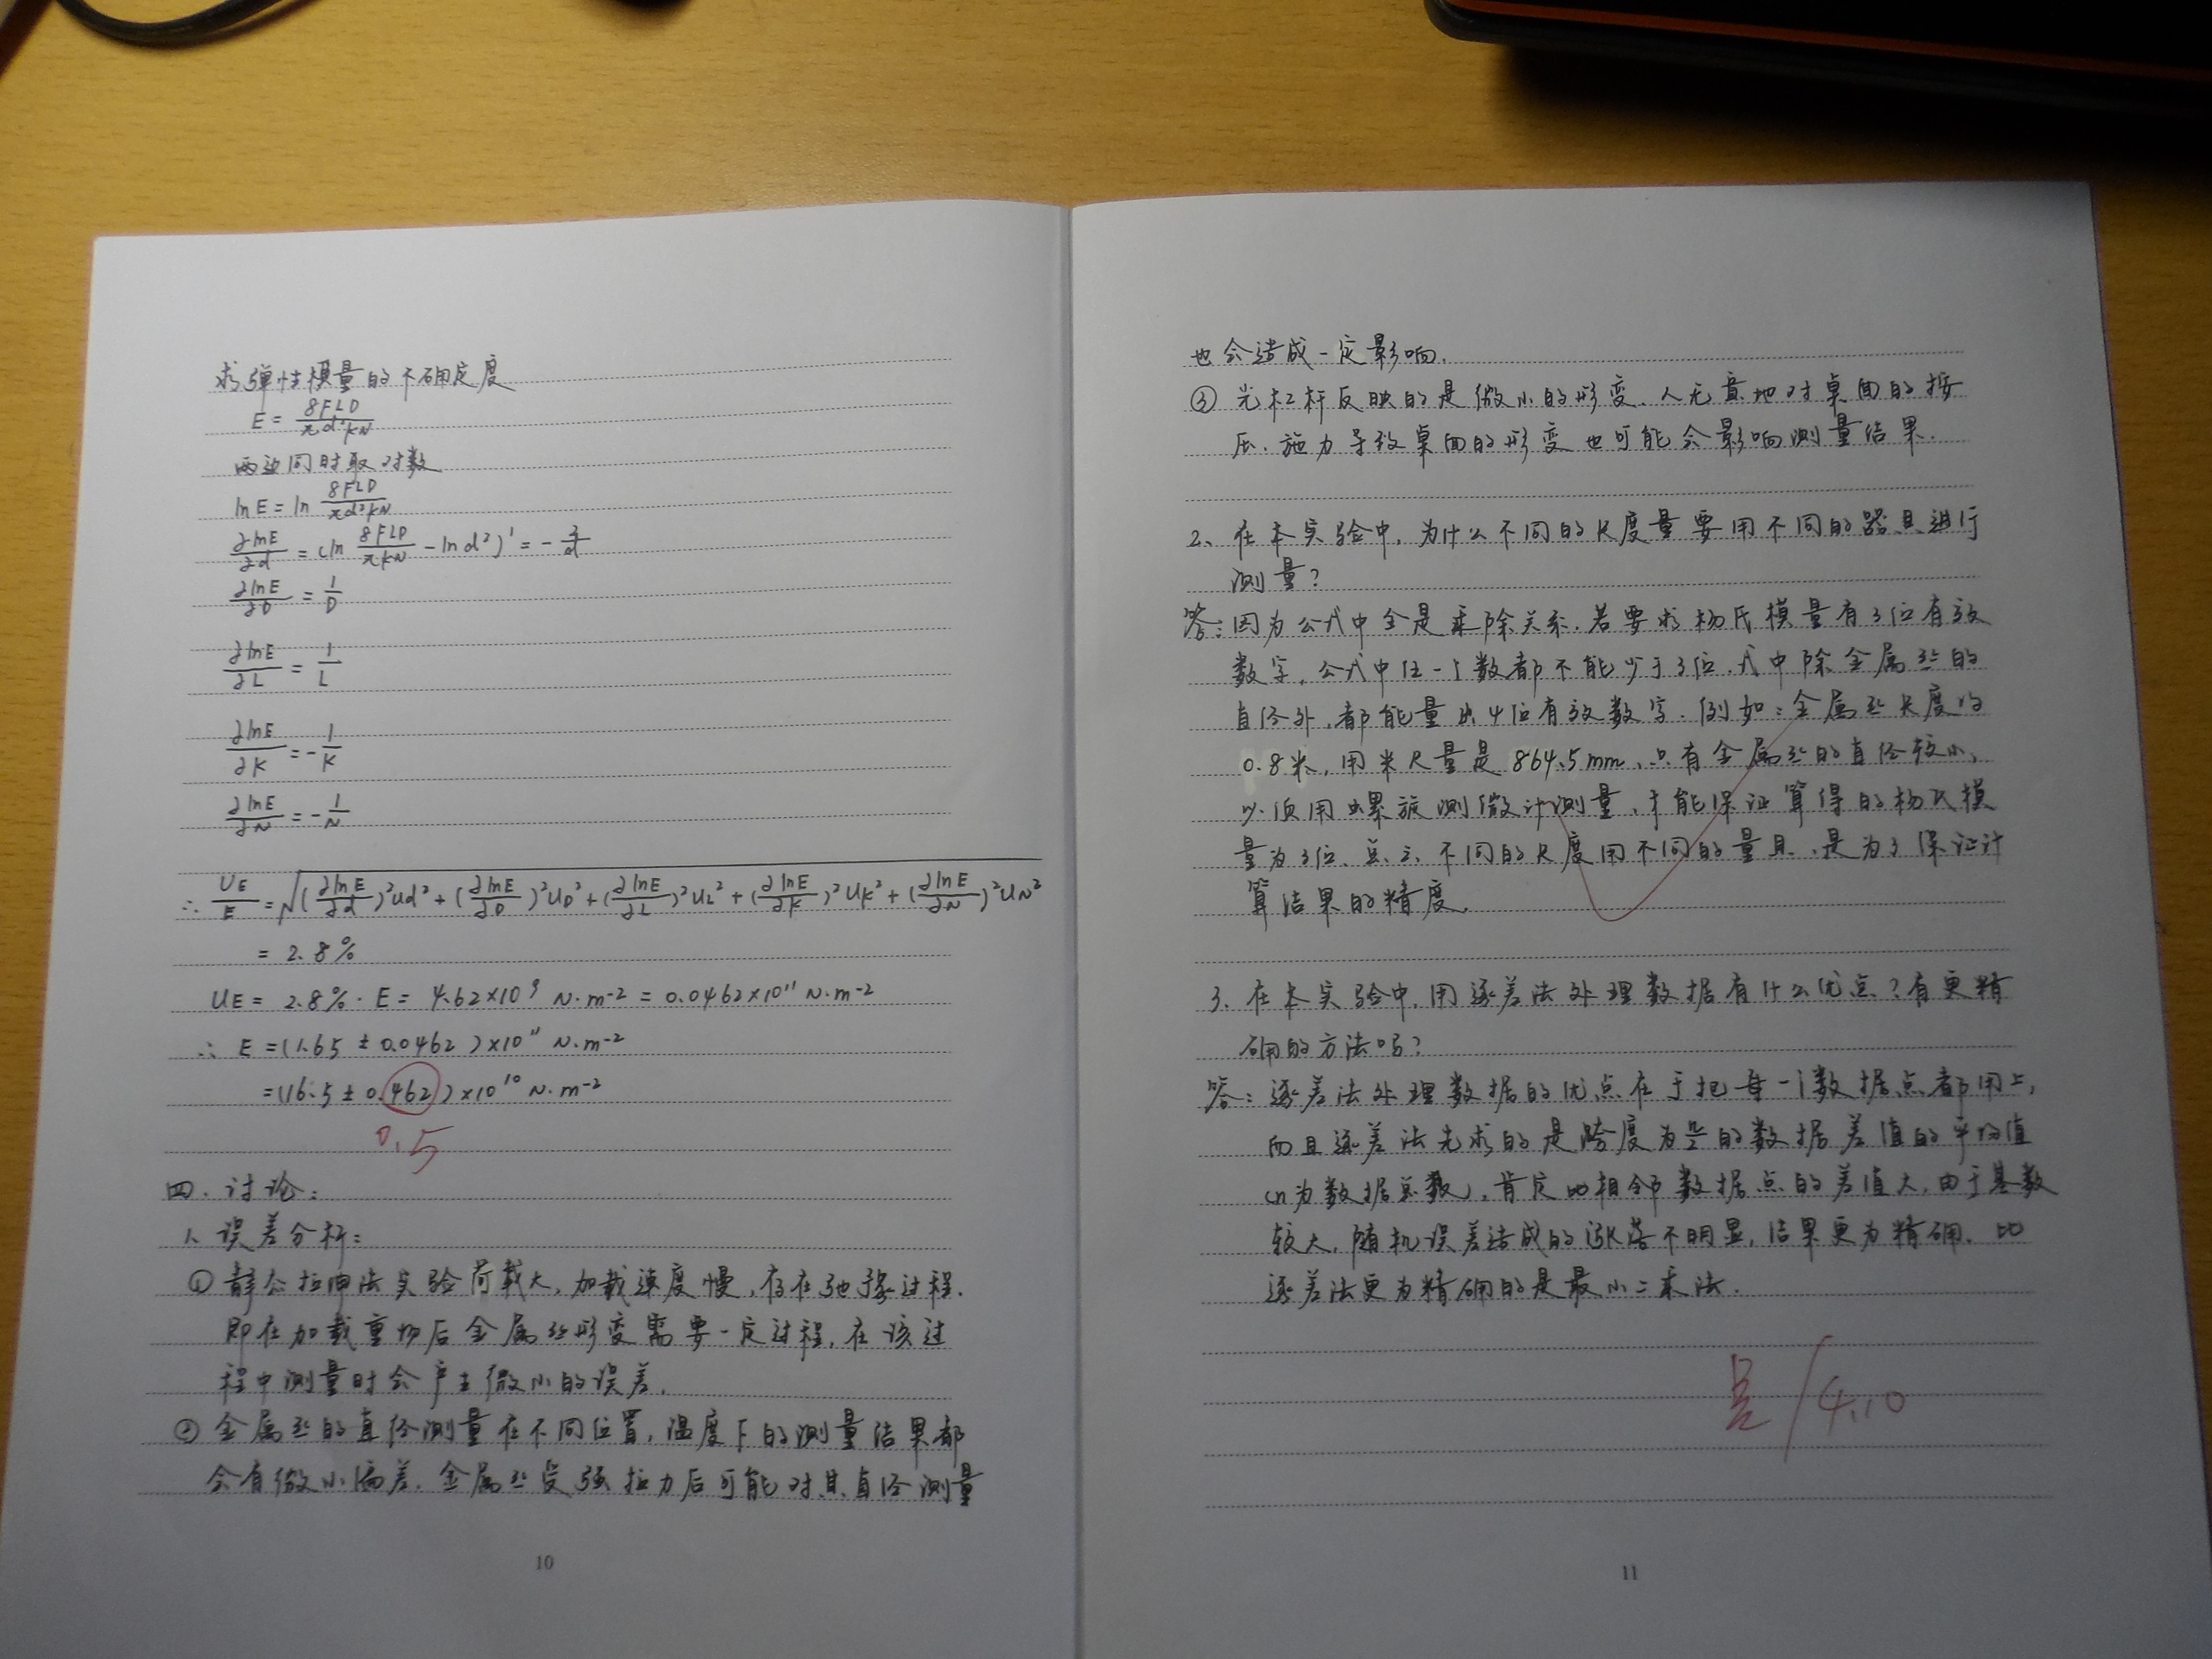 求弹性模量的不确定度
E = 8FLD / πd²KN
两边同时取对数
lnE = ln 8FLD / πd²KN
∂lnE/∂d = (ln 8FLD/πKN - lnd²)' = - 2/d
∂lnE/∂D = 1/D
∂lnE/∂L = 1/L
∂lnE/∂K = - 1/K
∂lnE/∂N = - 1/N
∴ UE/E = √(∂lnE/∂d)²Ud² + (∂lnE/∂D)²UD² + (∂lnE/∂L)²UL² + (∂lnE/∂K)²UK² + (∂lnE/∂N)²UN²
= 2.8%
UE = 2.8%·E = 4.62×10⁹ N·m-2 = 0.0462×10¹¹ N·m-2
∴ E = (1.65 ± 0.0462)×10¹¹ N·m-2
= (16.5 ± 0.462)×10¹⁰ N·m-2
0.5
四、讨论：
1、误差分析：
① 静态拉伸法实验荷载大，加载速度慢，存在弛豫过程.
即在加载重物后金属丝形变需要一定过程，在该过
程中测量时会产生微小的误差.
② 金属丝的直径测量在不同位置，温度下的测量结果都
会有微小偏差. 金属丝受强拉力后可能对其直径测量
10
也会造成一定影响.
③ 光杠杆反映的是微小的形变、人无意地对桌面的按
压、施力导致桌面的形变也可能会影响测量结果.
2、在本实验中，为什么不同的长度量要用不同的器具进行
测量？
答：因为公式中全是乘除关系，若要求杨氏模量有3位有效
数字，公式中任一个数都不能少于3位，式中除金属丝的
直径外，都能量出4位有效数字. 例如：金属丝长度约
0.8米，用米尺量是864.5mm，只有金属丝的直径较小，
必须用螺旋测微计测量，才能保证算得的杨氏模
量为3位、总之，不同的长度用不同的量具，是为了保证计
算结果的精度.
3. 在本实验中，用逐差法处理数据有什么优点？有更精
确的方法吗？
答：逐差法处理数据的优点在于把每一个数据点都用上，
而且逐差法先求的是跨度为n/2的数据差值的平均值
(n为数据总数)，肯定比相邻数据点的差值大，由于基数
较大，随机误差造成的涨落不明显，结果更为精确. 比
逐差法更为精确的是最小二乘法.
4.10
11